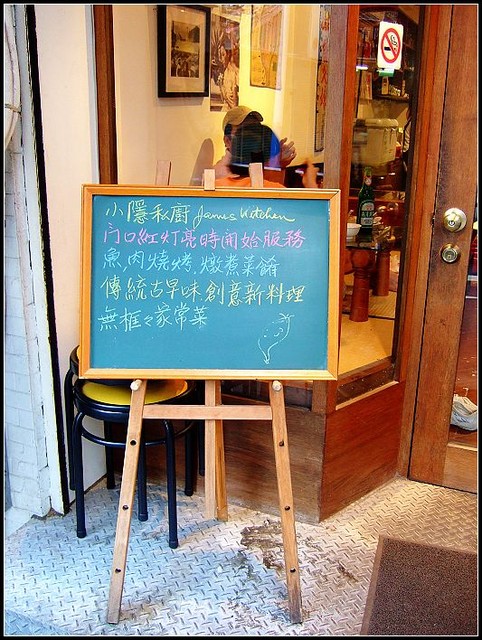 小隱私廚 James Kitchen
门口紅灯亮時開始服務
魚肉燒烤.燉煮菜餚
傳統古早味創意新料理
無框々家常菜